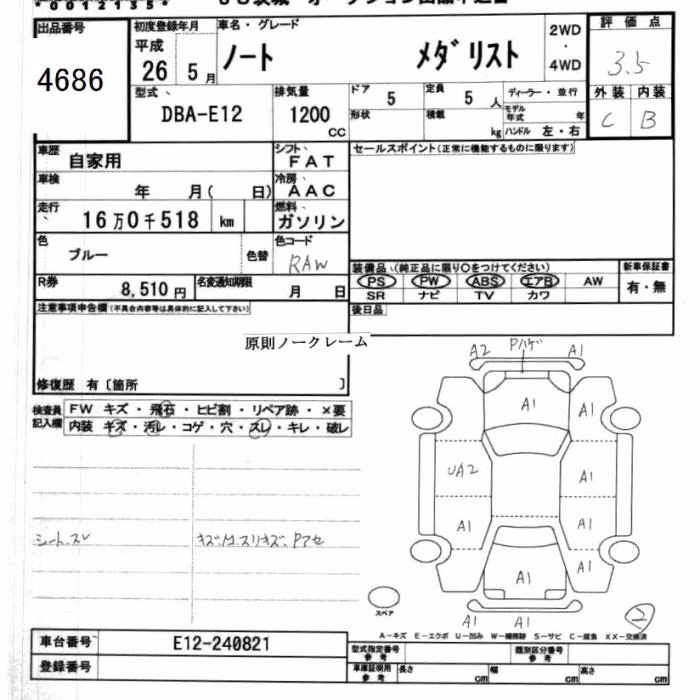 *00121354*
出品番号
4686
初度登録年月
平成
26 5月
車名・グレード
ノート メダリスト
2WD
・
4WD
評価点
3.5
型式、
DBA-E12
排気量
1200
CC
ドア
5
形状
定員
5人
積載
kg
ディーラー・並行
モデル年式 年
ハンドル 左・右
外装 内装
C B
車歴
自家用
シフト、
FAT
セールスポイント(正常に機能するものに限ります)
車検
年 月( 日)
冷房、
AAC
走行、
16万0千518 km
燃料、
ガソリン
色
ブルー
色替
色コード
RAW
装備品、(純正品に限り○をつけてください)
新車保証書
PS PW ABS エアB AW
有・無
SR ナビ TV カワ
R券
8,510円
名変通知期限
月 日
後日品
注意事項申告欄(不具合内容等は具体的に記入して下さい)
原則ノークレーム
修復歴 有〔箇所 〕
検査員記入欄
FW キズ・飛石・ヒビ割・リペア跡・×要
内装 キズ・汚レ・コゲ・穴・スレ・キレ・破レ
A2 Pハゲ A1
A1 A1
UA2 A1
A1 A1
A1 A1
A1 A1
シート.スレ
スペア
2
A-キズ E-エクボ U-凹み W-補修跡 S-サビ C-腐食 XX-交換済
車台番号
E12-240821
登録番号
型式指定番号
参考
類別区分番号
参考
車庫証明用
参考
長さ cm
幅 cm
高さ cm